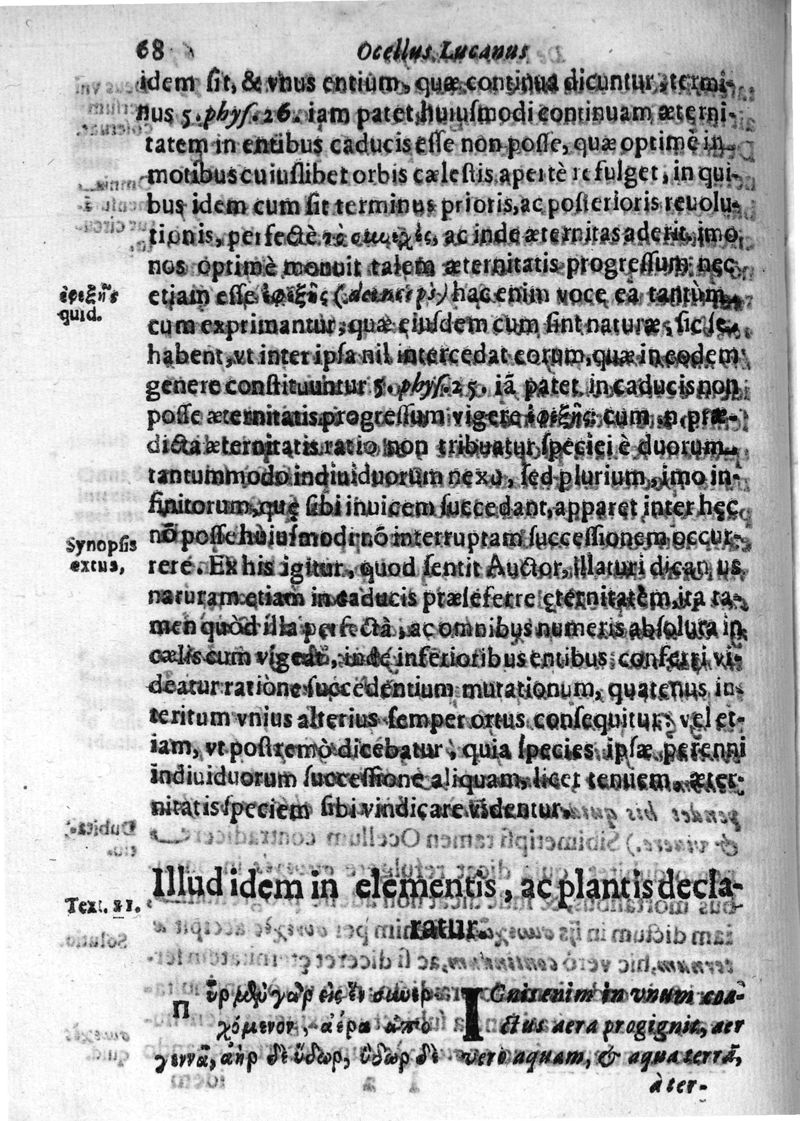 68 Ocellus Lucanus
idem sit, & vnus entium, quæ continua dicuntur, termi-
nus 5. phys. 26. iam patet huiusmodi continuam æterni-
tatem in entibus caducis esse non posse, quæ optimè in
motibus cuiuslibet orbis cælestis apertè refulget, in qui-
bus idem cum sit terminus prioris, ac posterioris reuolu-
tionis, perfectè τὸ συνεχὲς, ac inde æternitas aderit, imo
nos optimè monuit talem æternitatis progressum nec
ἐφεξῆς
quid.
etiam esse ἐφεξῆς (deinceps) hac enim voce ea tantùm
cum exprimantur, quæ eiusdem cum sint naturæ, sic se
habent, vt inter ipsa nil intercedat eorum, quæ in eodem
genere constituuntur 5. phys. 25. iã patet in caducis non
posse æternitatis progressum vigere ἐφεξῆς cum præ-
dicta æternitatis ratio non tribuatur speciei è duorum
tantummodo indiuiduorum nexu, sed plurium, imo in-
finitorum, quę sibi inuicem succedant, apparet inter hęc
Synopsis
extus,
nõ posse huiusmodi nõ interruptam successionem occur-
rere. Ex his igitur, quod sentit Auctor, illaturi dicamus
naturam etiam in caducis præseferre ęternitatem, ita ta-
men quòd illa perfecta, ac omnibus numeris absoluta in
cælis cum vigeat, inde inferioribus entibus conferri vi-
deatur ratione succedentium mutationum, quatenus in-
teritum vnius alterius semper ortus consequitur; vel et-
iam, vt postremò dicebatur, quia species ipsæ perenni
indiuiduorum successione aliquam, licet tenuem æter-
nitatis speciem sibi vindicare videntur.
Text. 21.
Illud idem in elementis, ac plantis decla-
ratur.
Πῦρ μὲν γὰρ εἰς ἓν συνερ
χόμενον, ἀέρα ἀπο
γεννᾷ, ἀὴρ δὲ ὕδωρ, ὕδωρ δὲ
IGnis enim in vnum coa-
ctus aera progignit, aer
verò aquam, & aqua terrã,
à ter-